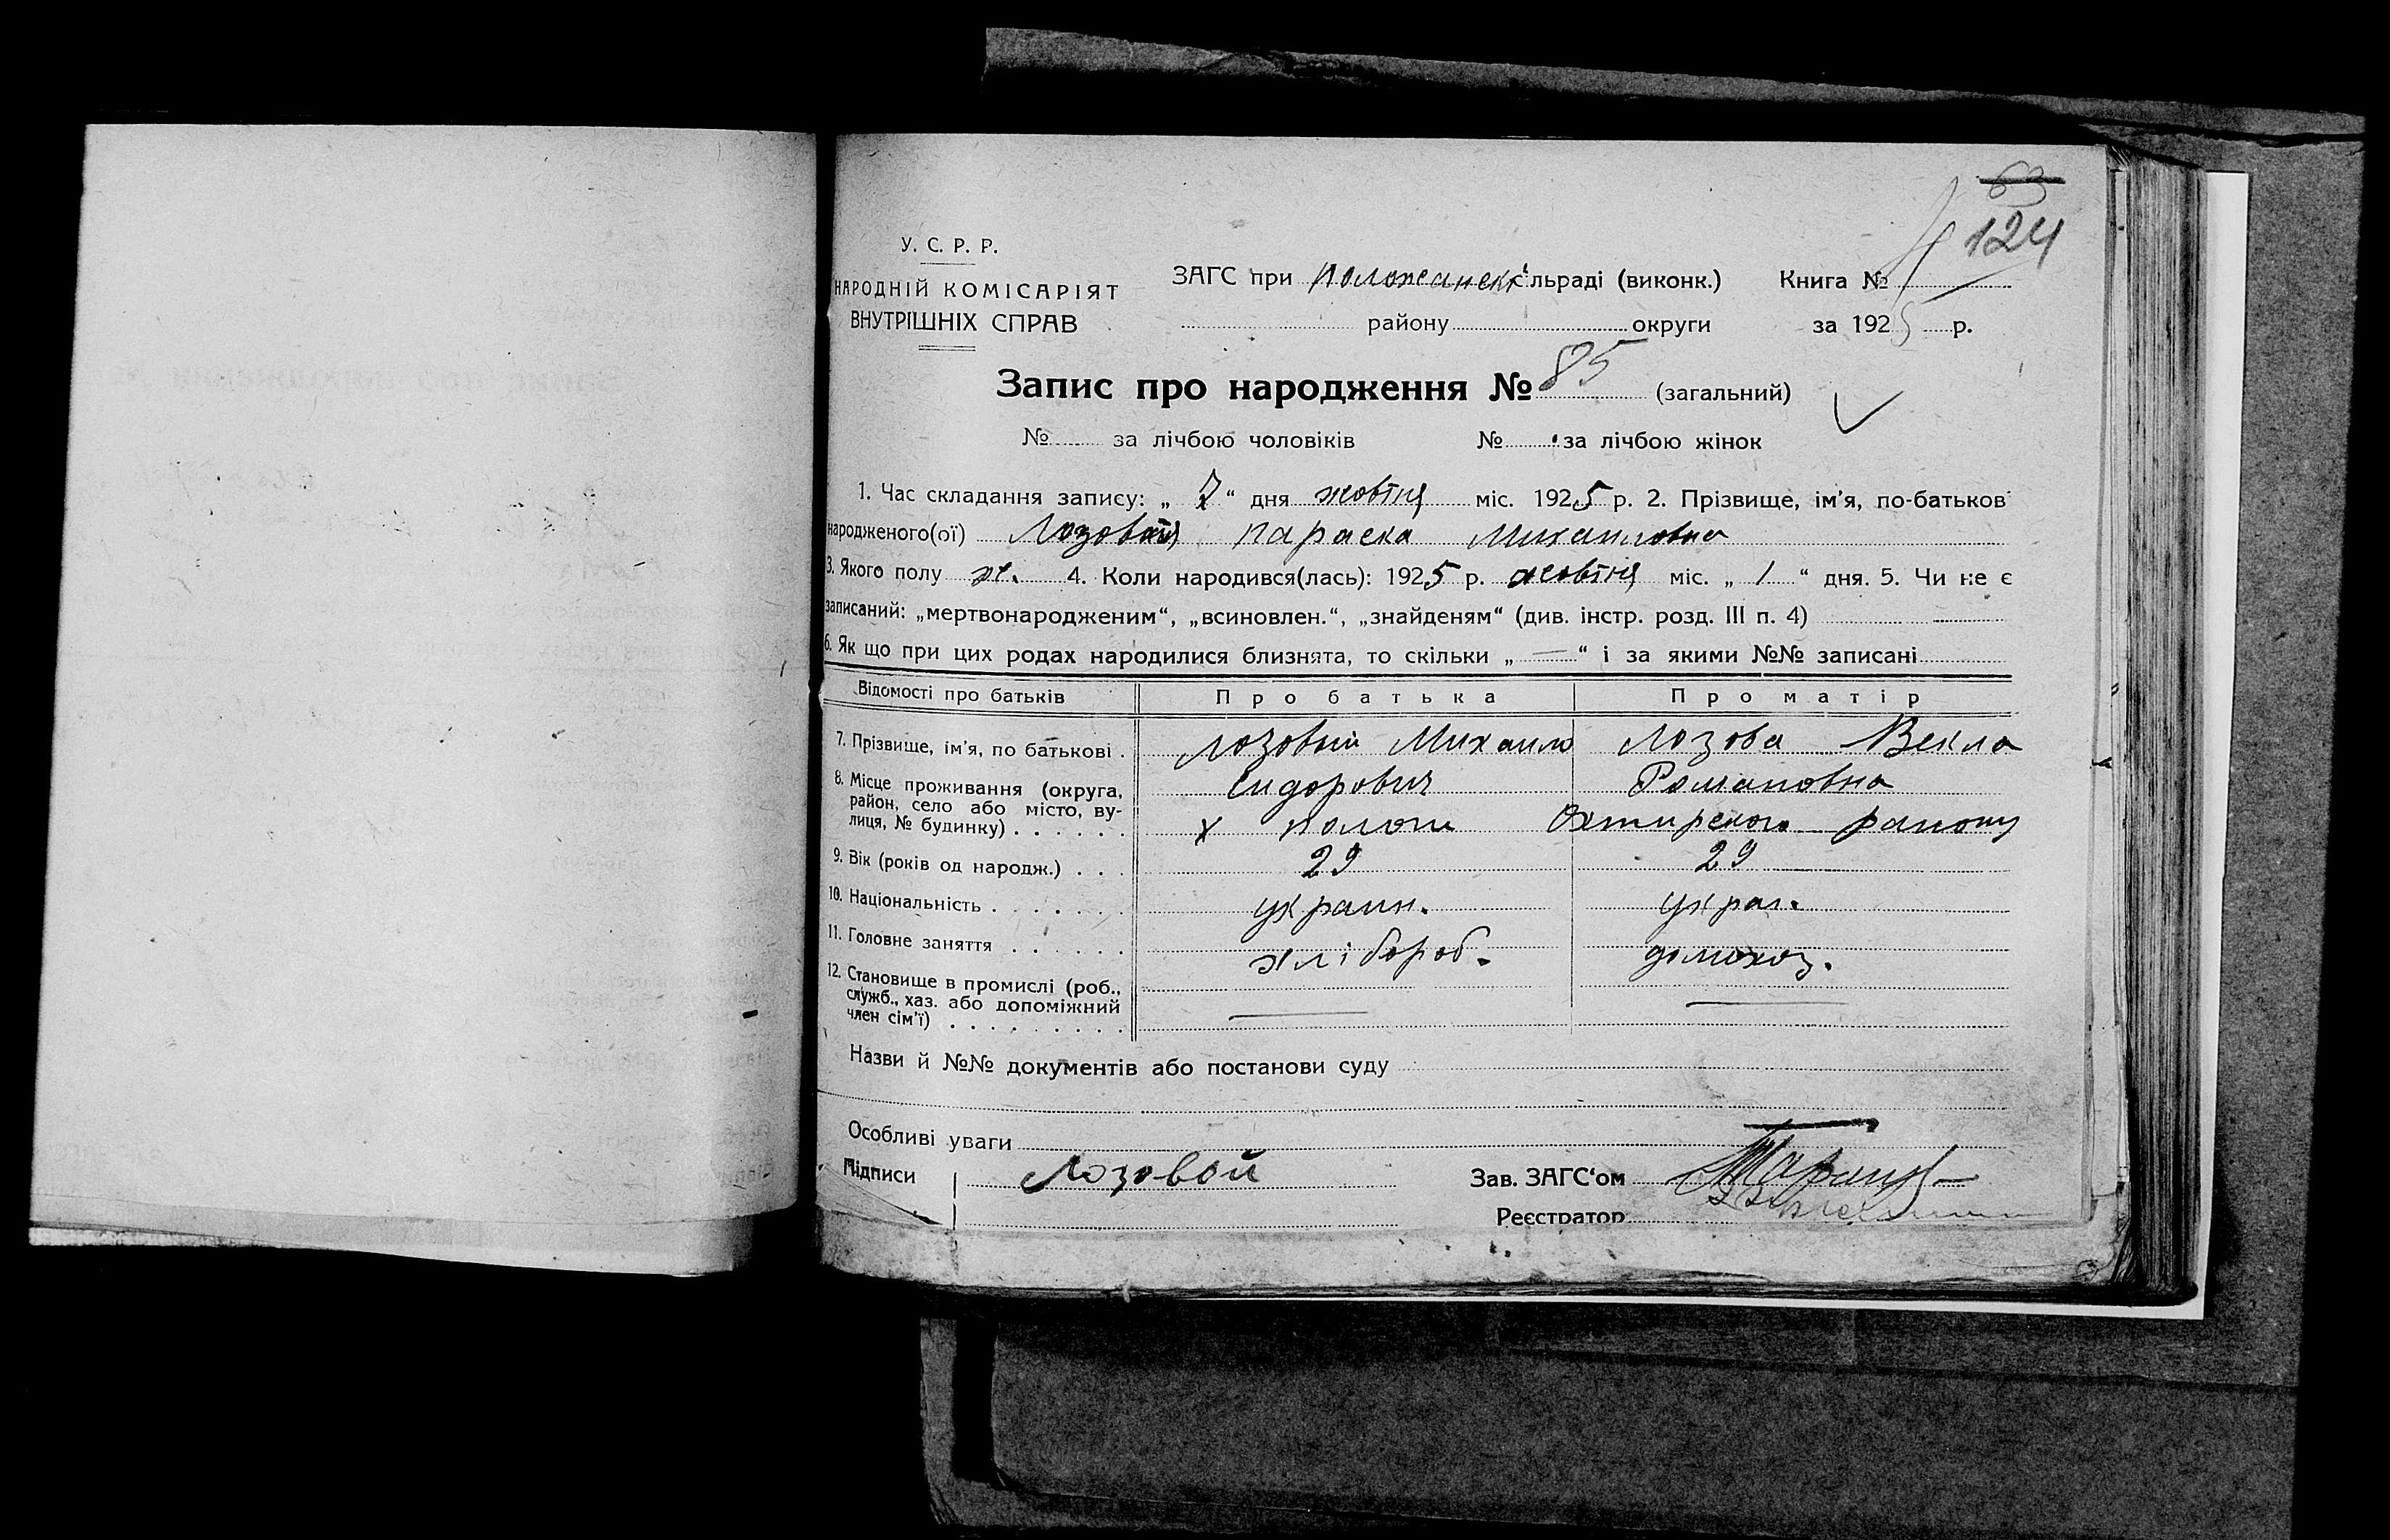 63
124
У. С. Р. Р.
НАРОДНІЙ КОМІСАРІЯТ
ВНУТРІШНІХ СПРАВ
ЗАГС при Положанськ сільраді (виконк.) Книга №
району округи за 1925 р.
Запис про народження № 85 (загальний)
№ за лічбою чоловіків № за лічбою жінок
1. Час складання запису: „ 7 “ дня жовтня міс. 1925 р. 2. Прізвище, ім’я, по-батькові
народженого(ої) Лозовая Параска Михаиловна
3. Якого полу ж. 4. Коли народився(лась): 1925 р. жовтня міс. „ 1 “ дня. 5. Чи не є
записаний: „мертвонародженим“, „всиновлен.“, „знайденям“ (див. інстр. розд. III п. 4)
6. Як що при цих родах народилися близнята, то скільки „ — “ і за якими №№ записані
Відомості про батьків Про батька Про матір
7. Прізвище, ім’я, по батькові . Лозовый Михаило Лозова Векла
Сидорович Романовна
8. Місце проживання (округа, район, село або місто, ву-
лиця, № будинку) . . . . . . х Пологи Охтирского раиону
9. Вік (років од народж.) . . . 29 29
10. Національність . . . . . . . украин. украi.
11. Головне заняття . . . . . . хлібороб. домохоз.
12. Становище в промислі (роб.,
служб., хаз. або допоміжний
член сім’ї) . . . . . . . . . — —
Назви й №№ документів або постанови суду
Особливі уваги
Підписи Лозовой Зав. ЗАГС‘ом
Реєстратор